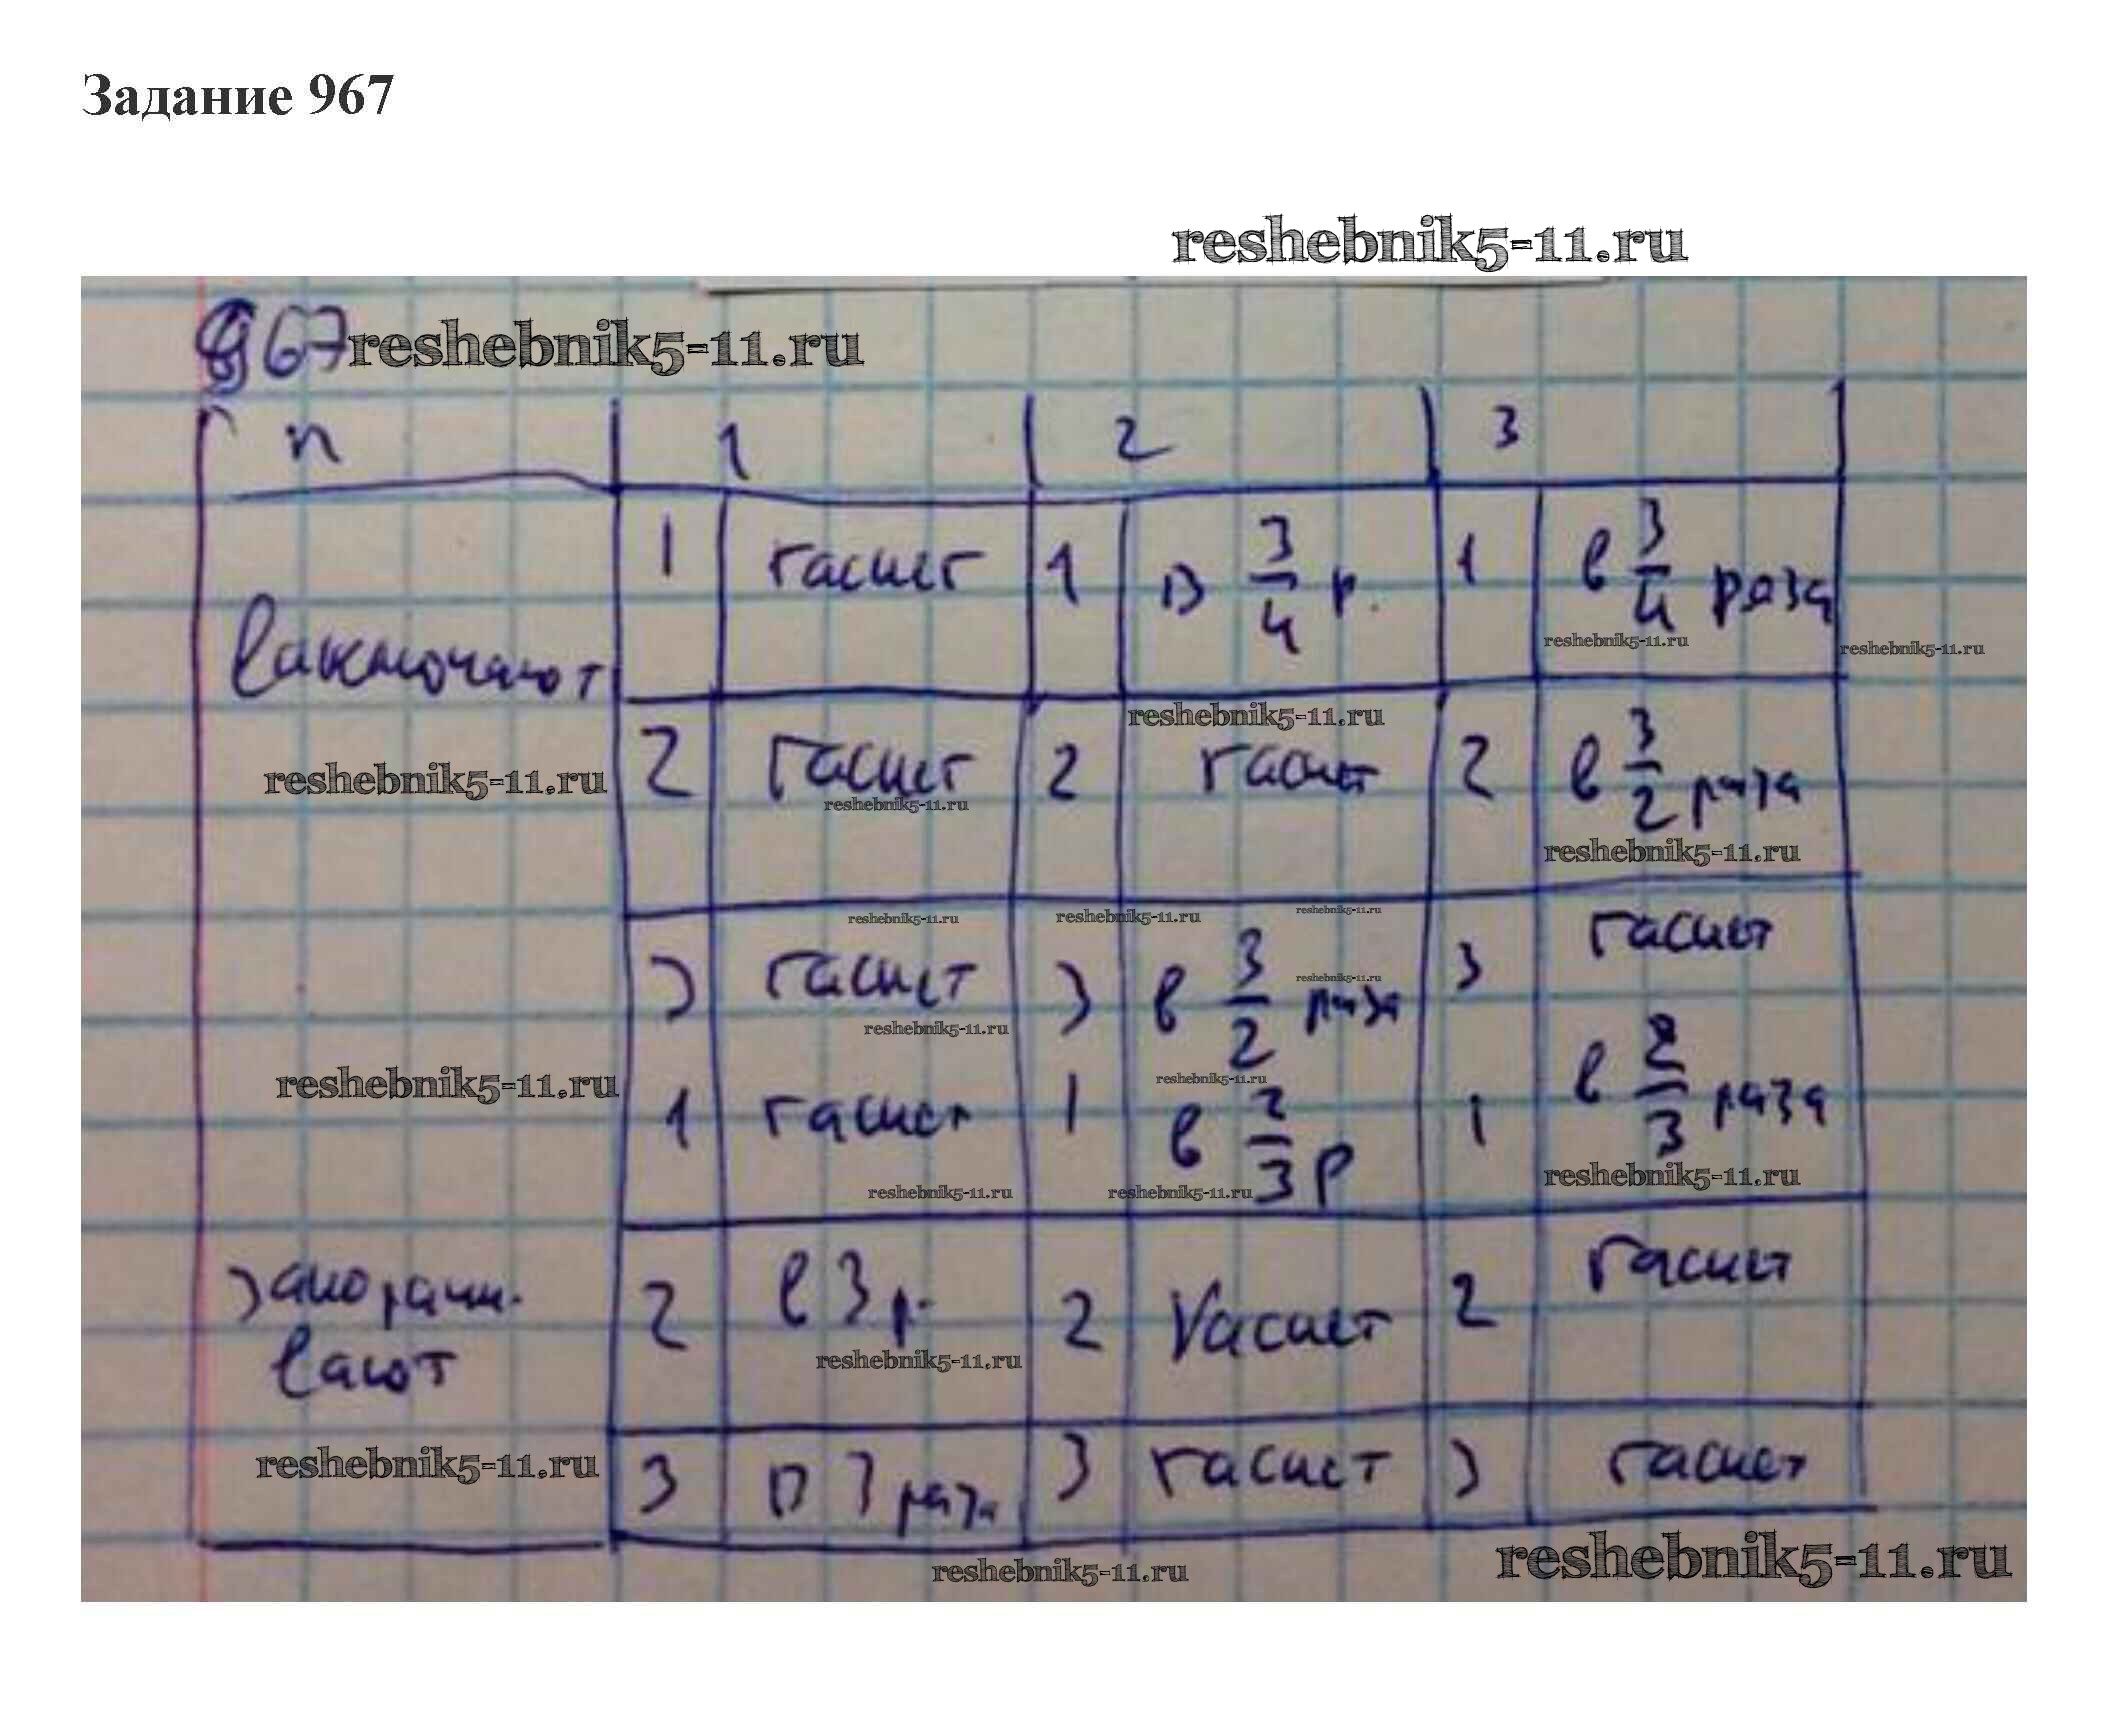 Задание 967
reshebnik5-11.ru
967 reshebnik5-11.ru
n 1 2 3
1 гасист 1 в 3/4 р. 1 в 3/4 раза
reshebnik5-11.ru reshebnik5-11.ru
выключают
reshebnik5-11.ru
2 гаснет 2 гаснет 2 в 3/2 раза
reshebnik5-11.ru reshebnik5-11.ru
reshebnik5-11.ru
reshebnik5-11.ru reshebnik5-11.ru reshebnik5-11.ru
3 гаснет 3 в 3/2 раза 3 гаснет
reshebnik5-11.ru
reshebnik5-11.ru
reshebnik5-11.ru reshebnik5-11.ru
1 гаснет 1 в 2/3 р 1 в 2/3 раза
reshebnik5-11.ru reshebnik5-11.ru reshebnik5-11.ru
закорачи-
вают
2 в 3 р. 2 гаснет 2 гаснет
reshebnik5-11.ru
reshebnik5-11.ru
3 в 3 раза 3 гаснет 3 гаснет
reshebnik5-11.ru reshebnik5-11.ru